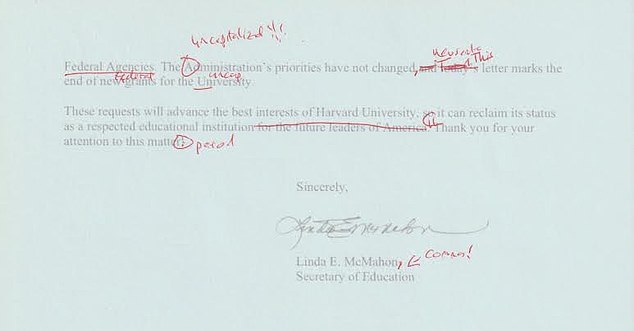 uncapitalized!!!
Federal Agencies. The Administration's priorities have not changed, and today's letter marks the
This
federal
uncap
end of new grants for the University.
These requests will advance the best interests of Harvard University, so it can reclaim its status
as a respected educational institution for the future leaders of America. Thank you for your
attention to this matter.
period
Sincerely,
Linda E. McMahon
Linda E. McMahon,
comma!
Secretary of Education